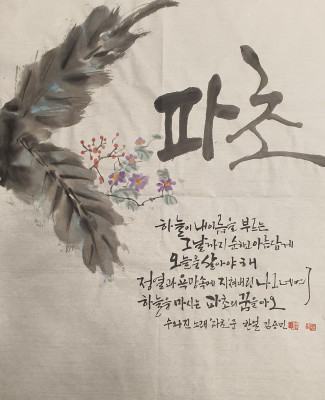 파초
하늘이 내 이름을 부르는
그날까지 순하고 아름답게
오늘을 살아야 해
정열과 욕망속에 지쳐버린 나그네여
하늘을 마시는 파초의 꿈을 아오
수와진 노래 '파초' 중